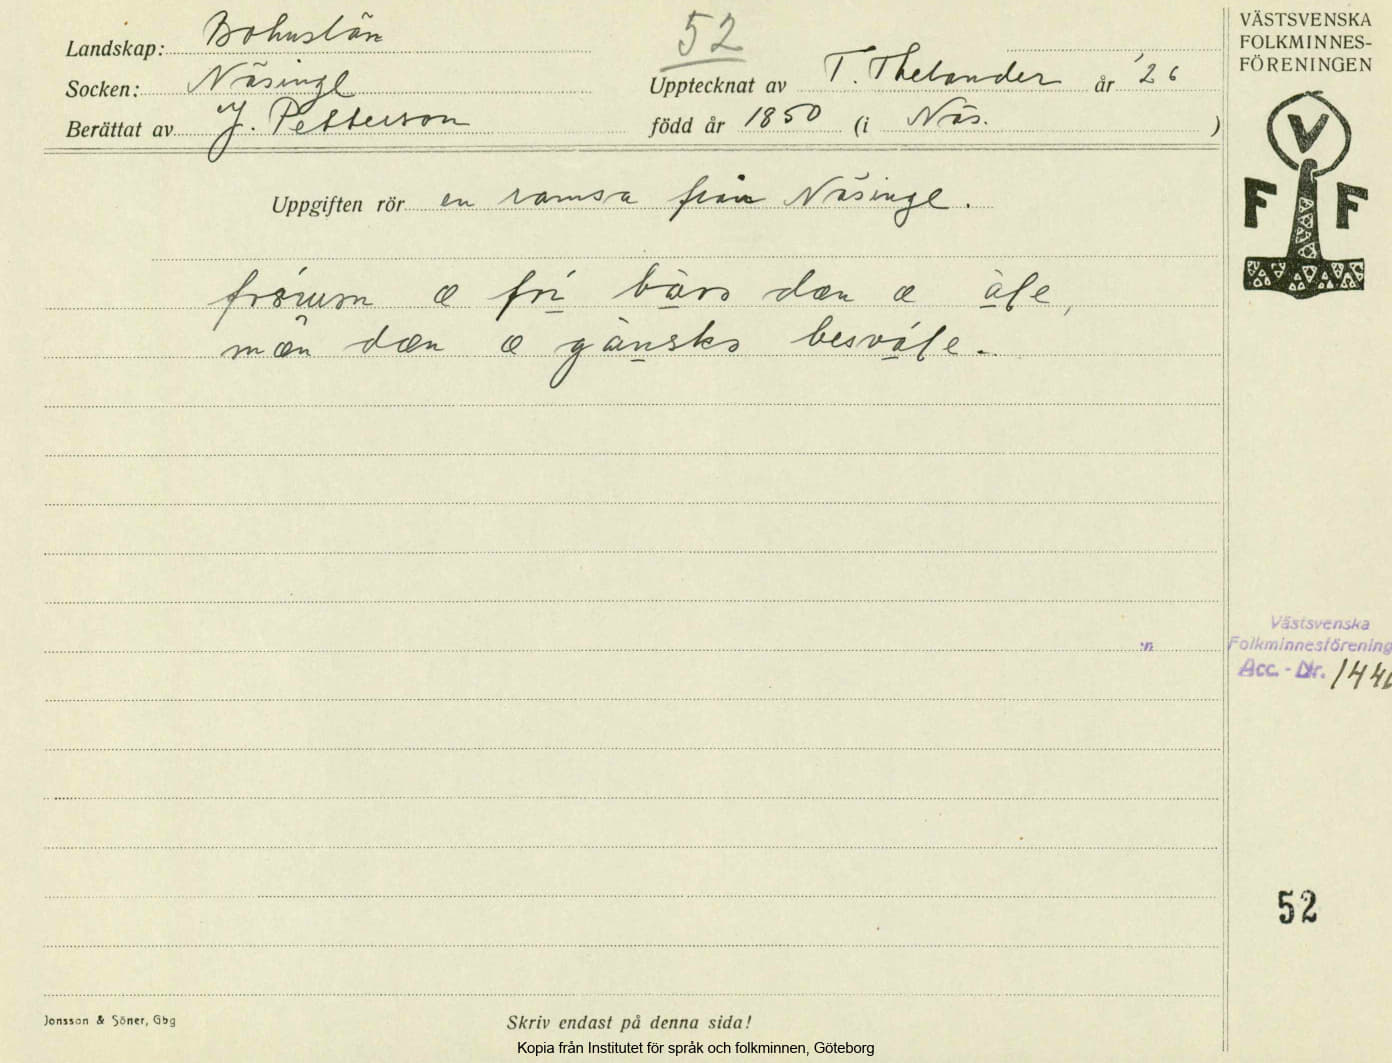 VÄSTSVENSKA
FOLKMINNES-
FÖRENINGEN
V
F F
52
Landskap: Bohuslän
Socken: Näsinge
Upptecknat av T. Thelander år '26
Berättat av J. Petterson
född år 1850 (i Näs. )
Uppgiften rör en ramsa från Näsinge.
æ dæn æ
mæn dæn æ
Västsvenska
Folkminnesförening
Acc. - Nr. 144
52
Jonsson & Söner, Gbg
Skriv endast på denna sida!
Kopia från Institutet för språk och folkminnen, Göteborg